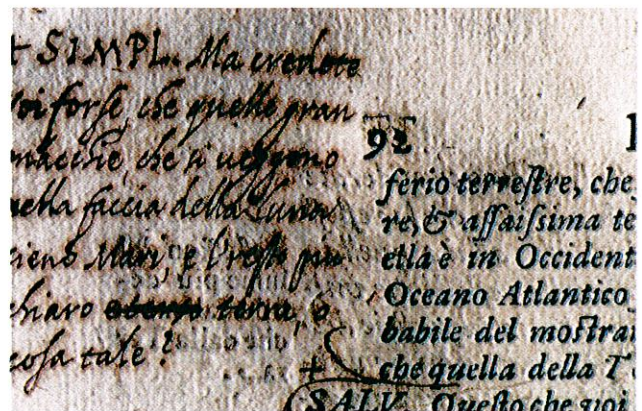 + SIMPL. Ma credete
Voi forse, che quelle gran
macchie, che si veggono
nella faccia della Luna,
sieno Mari, e il resto piu
chiaro terra, o
cosa tale?
92
ferio terreſtre, che
re, & aſſaiſsima te
ella è in Occident
Oceano Atlantico
babile del moſtrar
che quella della T
+
SALV. Queſto che voi